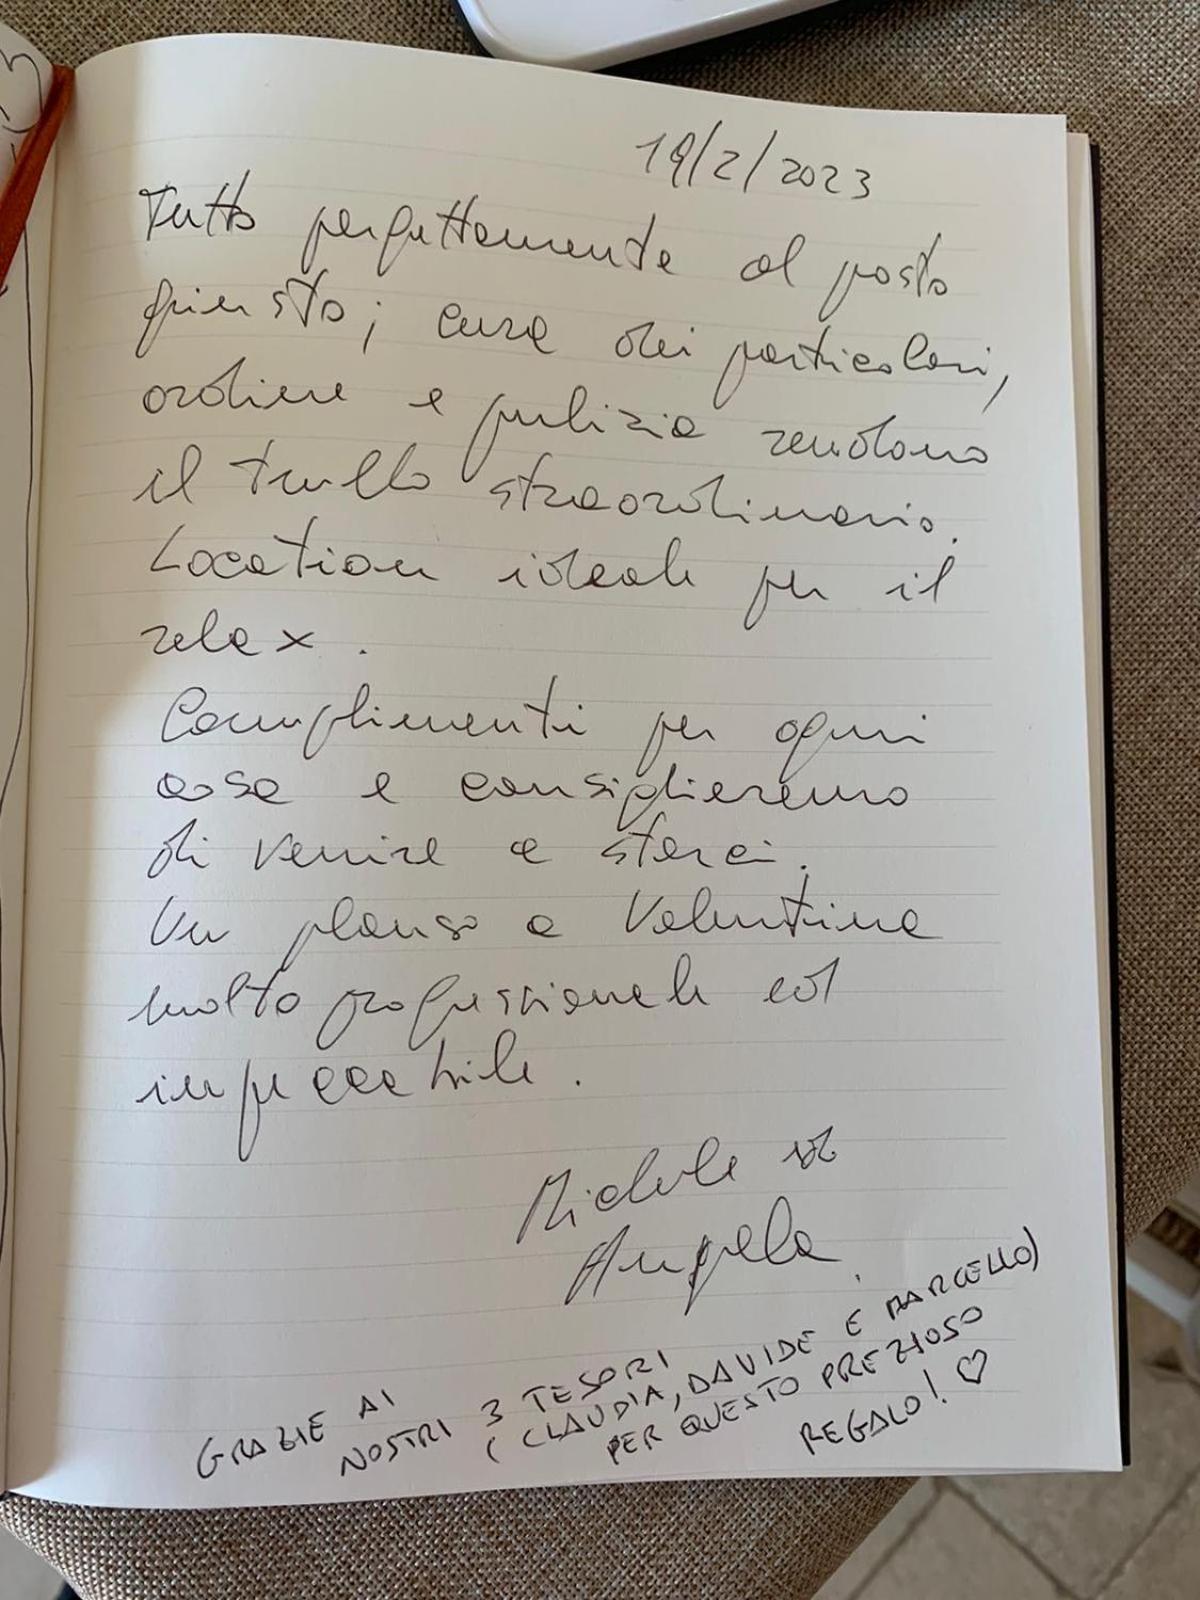 19/2/2023
Tutto perfettamente al posto
giusto; cura dei particolari,
ordine e pulizia rendono
il trullo straordinario.
Location ideale per il
relax.
Complimenti per ogni
cosa e consiglieremo
di venire a starci.
Un plauso a Valentina
molto professionale ed
impeccabile.
Michele ed
Angela.
GRAZIE AI
NOSTRI 3 TESORI
(CLAUDIA, DAVIDE E MARCELLO)
PER QUESTO PREZIOSO
REGALO! ♡